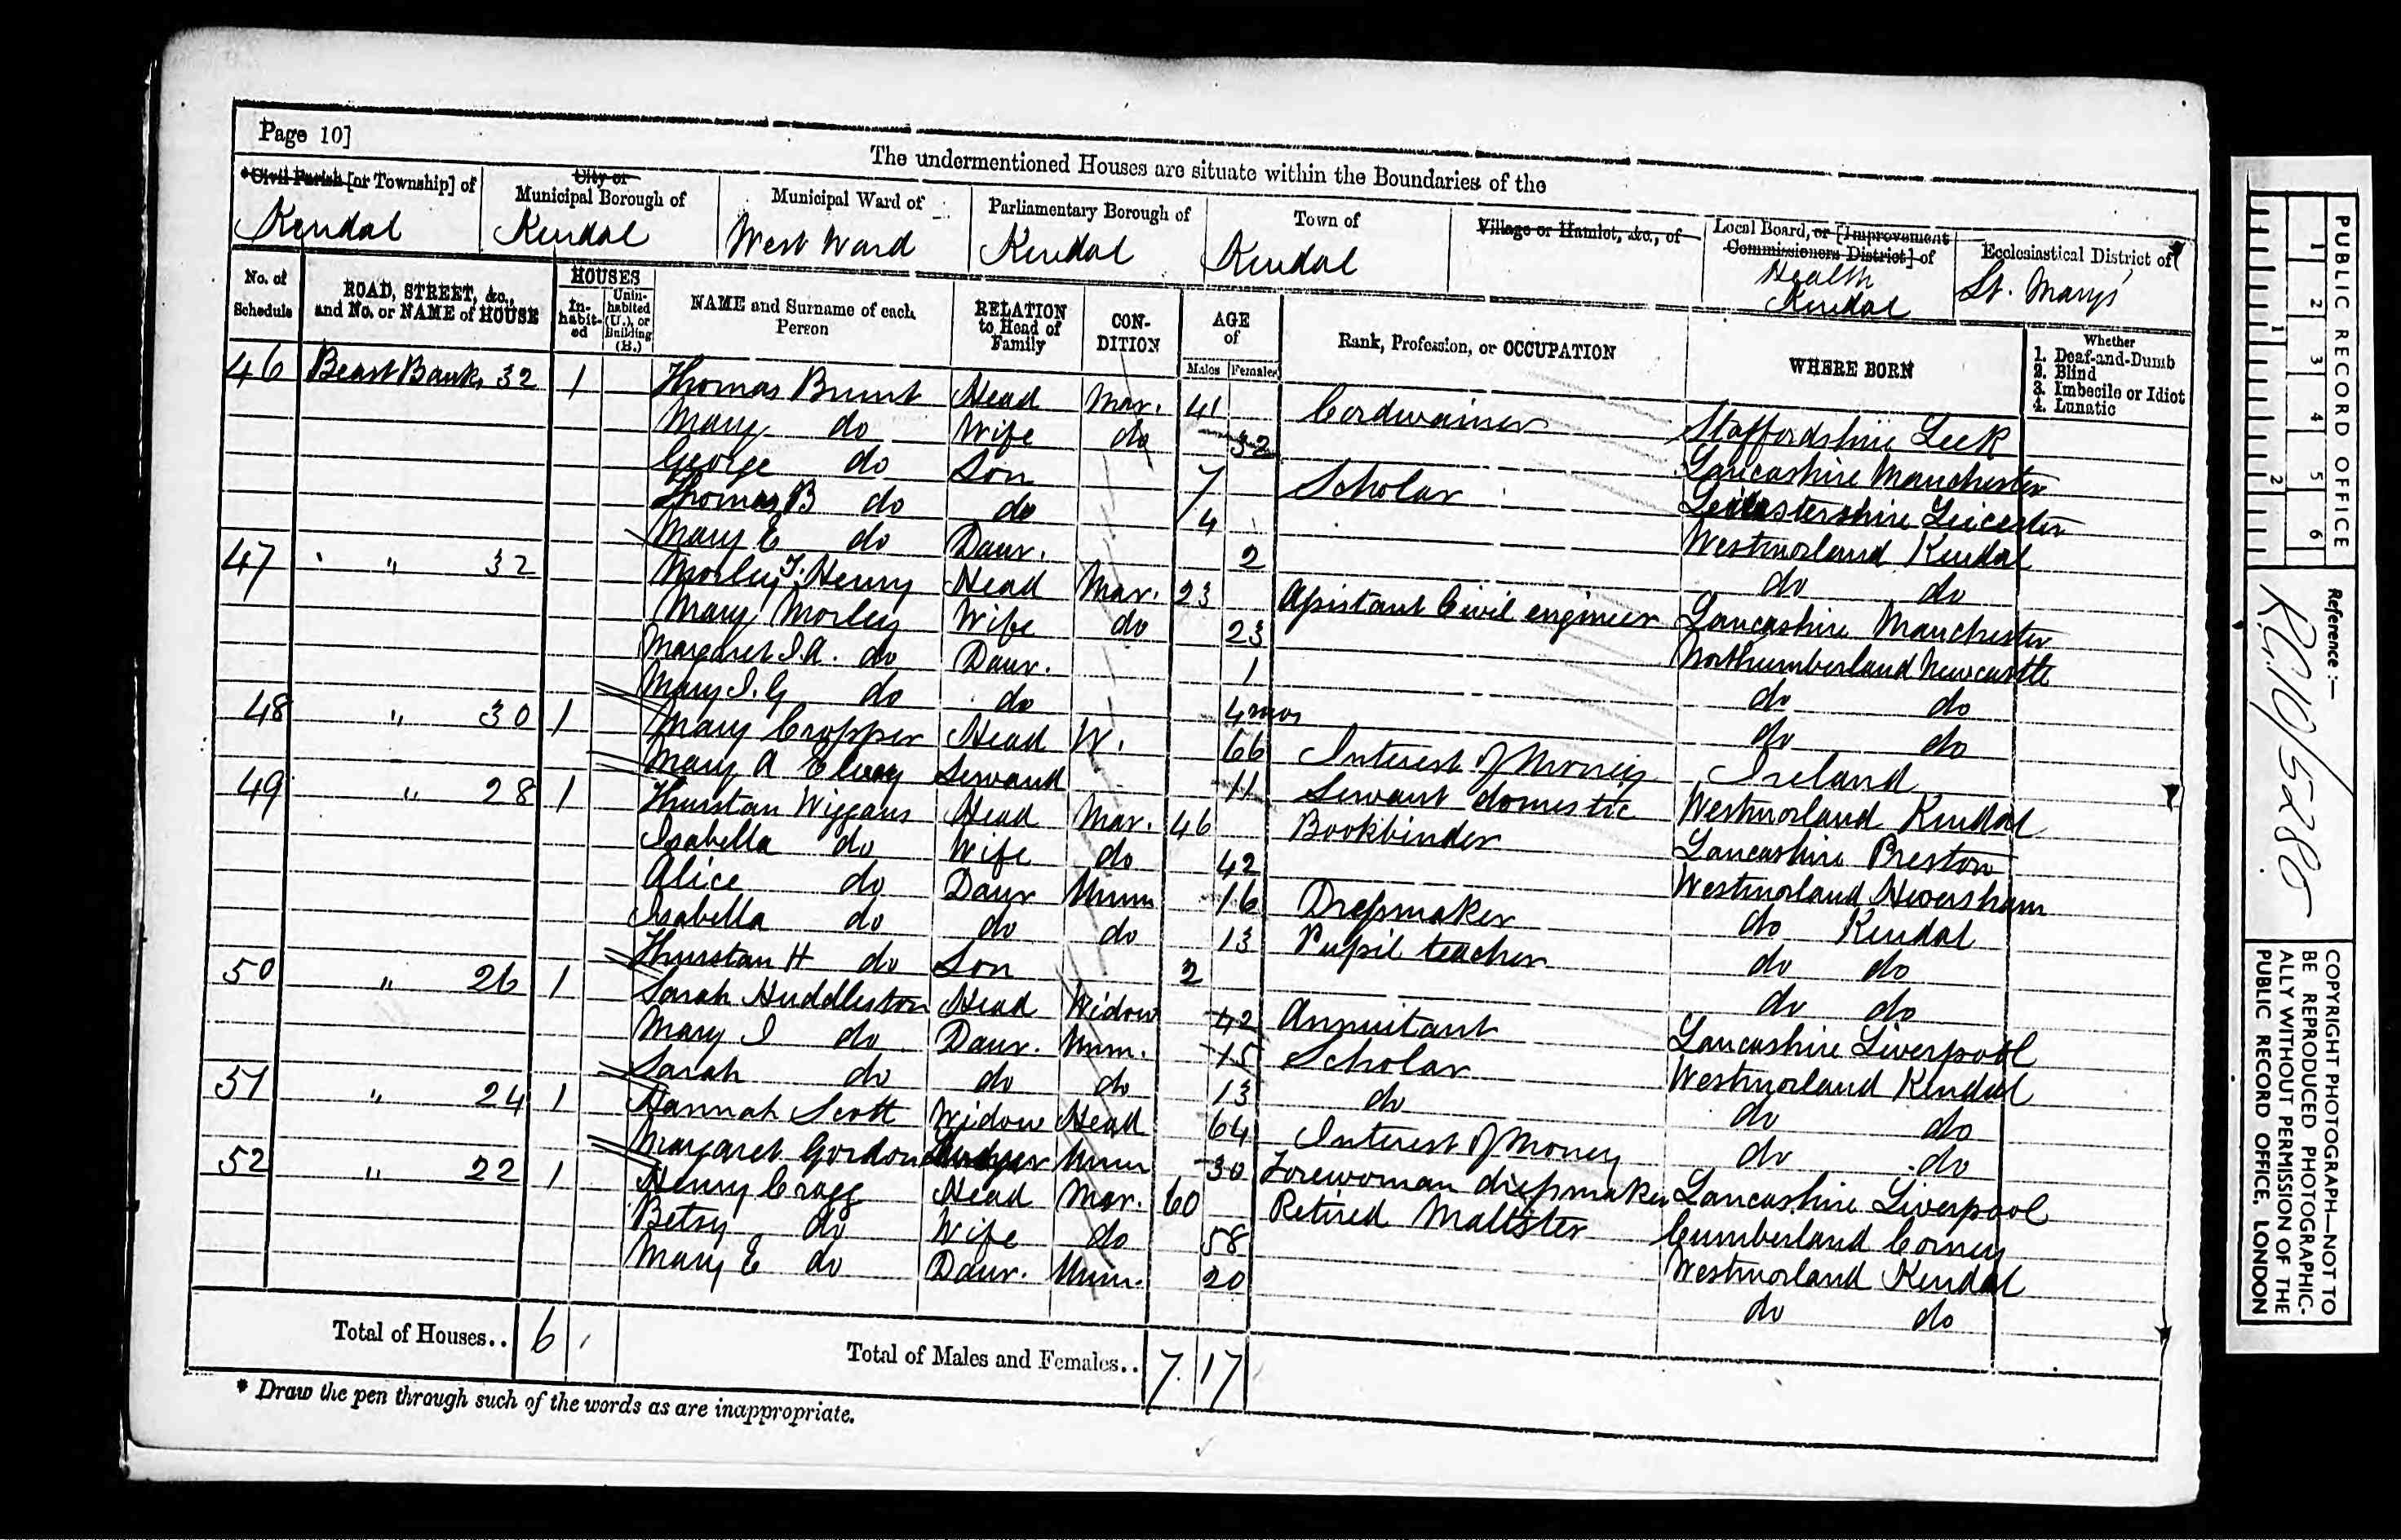 Page 10]
The undermentioned Houses are situate within the Boundaries of the
*Civil Parish [or Township] of
Kendal
City or
Municipal Borough of
Kendal
Municipal Ward of
West Ward
Parliamentary Borough of
Kendal
Town of
Kendal
Village or Hamlet, &c., of
Local Board, or [Improvement
Commissioners District] of
Health
Kendal
Ecclesiastical District of
St. Marys'
No. of
Schedule
ROAD, STREET, &c.,
and No. or NAME of HOUSE
HOUSES
In-
habit-
ed
Unin-
habited
(U.), or
Building
(B.)
NAME and Surname of each
Person
RELATION
to Head of
Family
CON-
DITION
AGE
of
Males Females
Rank, Profession, or OCCUPATION
WHERE BORN
Whether
1. Deaf-and-Dumb
2. Blind
3. Imbecile or Idiot
4. Lunatic
46 Beast Bank 32 1 Thomas Brunt Head Mar. 41 Cordwainer Staffordshire Leek
Mary do Wife do 32 Lancashire Manchester
George do Son 7 Scholar Leicestershire Leicester
Thomas B do do 4 Westmorland Kendal
Mary E do Daur. 2 do do
47 " " 32 Morley T. Henry Head Mar. 23 Assistant Civil engineer Lancashire Manchester
Mary Morley Wife do 23 Northumberland Newcastle
Margaret I.A. do Daur. 1 do do
Mary I. G do do 4 mos do do
48 " 30 1 Mary Cropper Head W. 66 Interest of Money Ireland
Mary A Servand 11 Servant domestic Westmorland Kendal
49 " 28 1 Thurstan Wiggans Head Mar. 46 Bookbinder Lancashire Preston
Isabella do Wife do 42 Westmorland Heversham
Alice do Daur Unm 16 Dressmaker do Kendal
Isabella do do do 13 Pupil teacher do do
Thurstan H do Son 2 do do
50 " 26 1 Sarah Huddleston Head Widow 42 Annuitant Lancashire Liverpool
Mary I do Daur. Unm. 15 Scholar Westmorland Kendal
Sarah do do do 13 do do do
51 " 24 1 Hannah Scott Widow Head 64 Interest of Money do do
Margaret Gordon Lodger Unm 30 Forewoman dressmaker Lancashire Liverpool
52 " 22 1 Henry Cragg Head Mar. 60 Retired Maltster Cumberland Corney
Betsy do Wife do 58 Westmorland Kendal
Mary E do Daur. Unm. 20 do do
Total of Houses.. 6
Total of Males and Females.. 7 17
* Draw the pen through such of the words as are inappropriate.
PUBLIC RECORD OFFICE
1 2 3 4 5 6
1 2
Reference :—
R.G. 10/5280
COPYRIGHT PHOTOGRAPH—NOT TO
BE REPRODUCED PHOTOGRAPHIC-
ALLY WITHOUT PERMISSION OF THE
PUBLIC RECORD OFFICE, LONDON